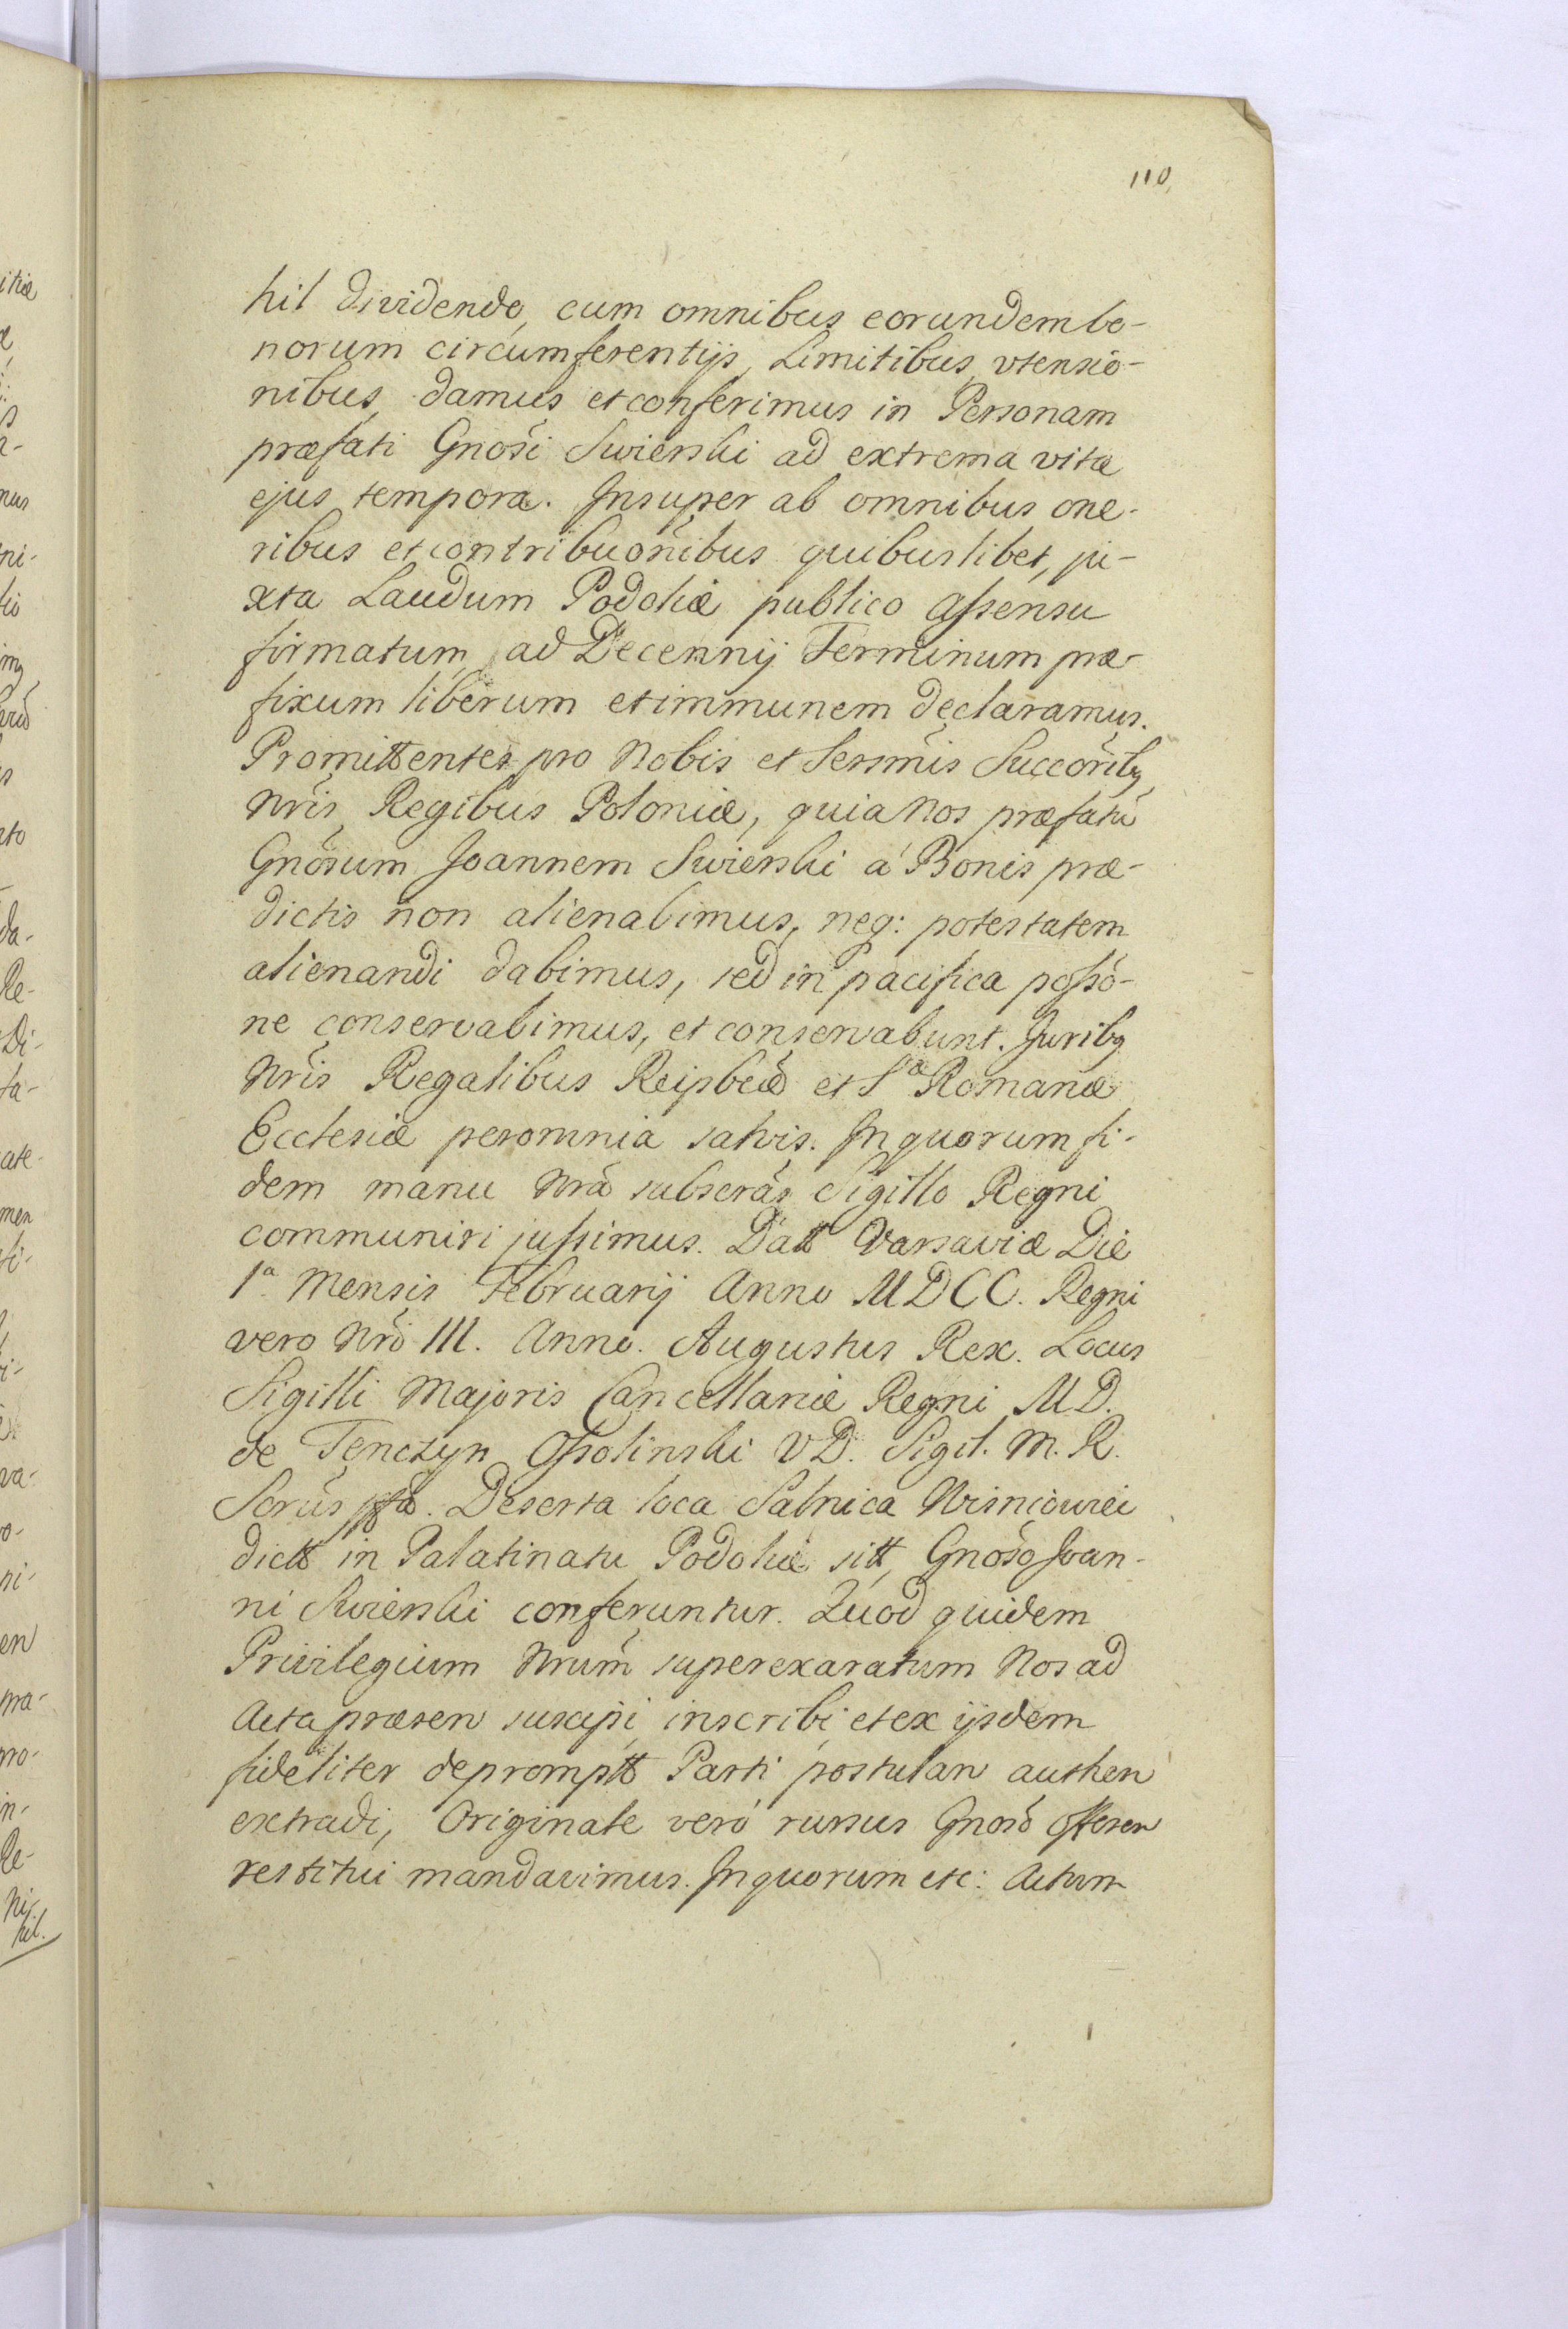 110
hil dividendo, cum omnibus eorundem bo-
norum circumferentijs, Limitibus, vtensio-
nibus, damus et conferimus in Personam
præfati Gnosi Swierski ad extrema vitæ
ejus tempora. Insuper ab omnibus one-
ribus et contribuõnibus quibuslibet, ju-
xta Laudum Podoliæ publico assensu
firmatum, ad Decennij Terminum præ-
fixum liberum et immunem declaramus.
Promittentes pro Nobis et Sersmis Succorib9
Nrīs, Regibus Poloniæ, quia Nos præfatū
Gnosum Joannem Swierski á Bonis præ-
dictis non alienabimus, neq: potestatem
alienandi dabimus, sed in pacifica possō-
ne conservabimus, et conservabunt. Jurib9
Nrīs Regalibus Reipbcæ et Sæ Romanæ
Ecclesiæ per omnia salvis. In quorum fi-
dem manu Nrā subscrās Sigillo Regni
communiri jussimus. Datt Varsaviæ Die
1a Mensis Februarij Anno MDCC. Regni
vero Nrī III. Anno. Augustus Rex. Locus
Sigilli Majoris Cancellariæ Regni MD.
de Tenczyn Ossolinski VD. Sigil. M. R.
Scrūs ppa. Deserta loca Salnica Wisniowiei
dictt in Palatinatu Podoliæ sitt, Gnoso Joan-
ni Swierski conferuntur. Quod quidem
Privilegium Nrum superexaratum Nos ad
Acta præsen suscipi, inscribi et ex ijsdem
fideliter depromptt Parti postulan authen
extradi, Originale veró rursus Gnoso offeren
restitui mandavimus. In quorum etc: Actum